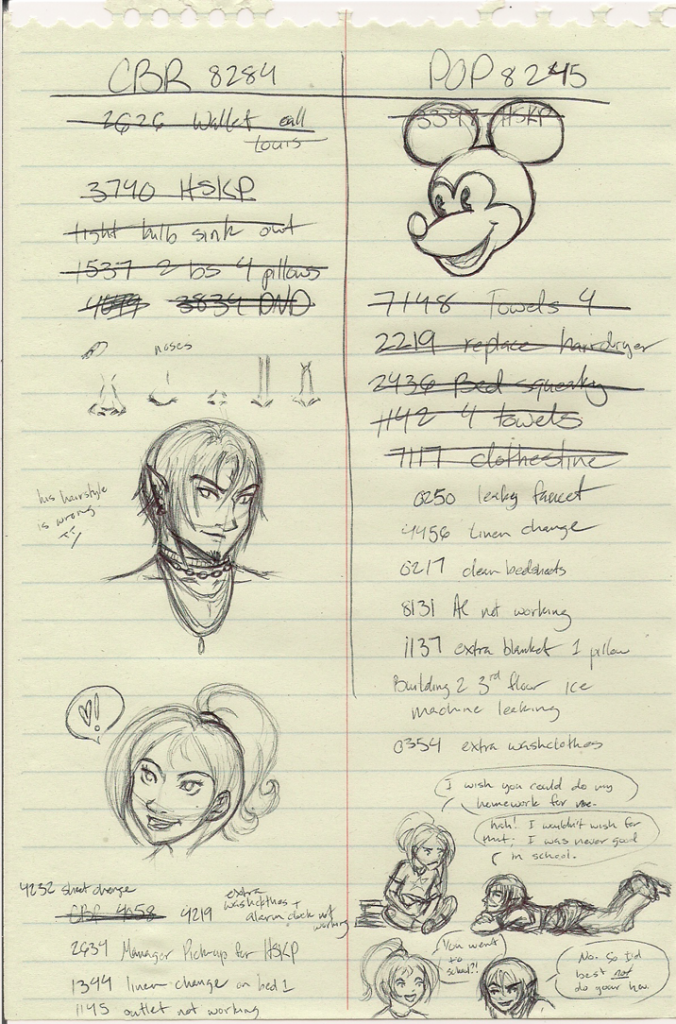 CBR 8284
2626 Wallet call
Louis
3740 HSKP
light bulb sink out
1537 2 bs 4 pillows
3834 DND
noses
his hairstyle
is wrong.
!
4232 sheet change
CBR 4058
4219 extra
washclothes +
alarm clock not
working
2634 Manager Pick-up for HSKP
1344 linen change on bed 1
1145 outlet not working
POP 8245
3348 HSKP
7148 Towels 4
2219 replace hairdryer
2436 Bed squeaky
1142 4 towels
7117 clothesline
0250 leaky faucet
4456 linen change
0217 clean bedsheets
8131 AC not working
1137 extra blanket 1 pillow
Building 2 3rd floor ice
machine leaking
0354 extra washclothes
I wish you could do my
homework for me.
huh! I wouldn't wish for
that; I was never good
in school.
You went
to
school?!
No. So I'd
best not
do your hw.